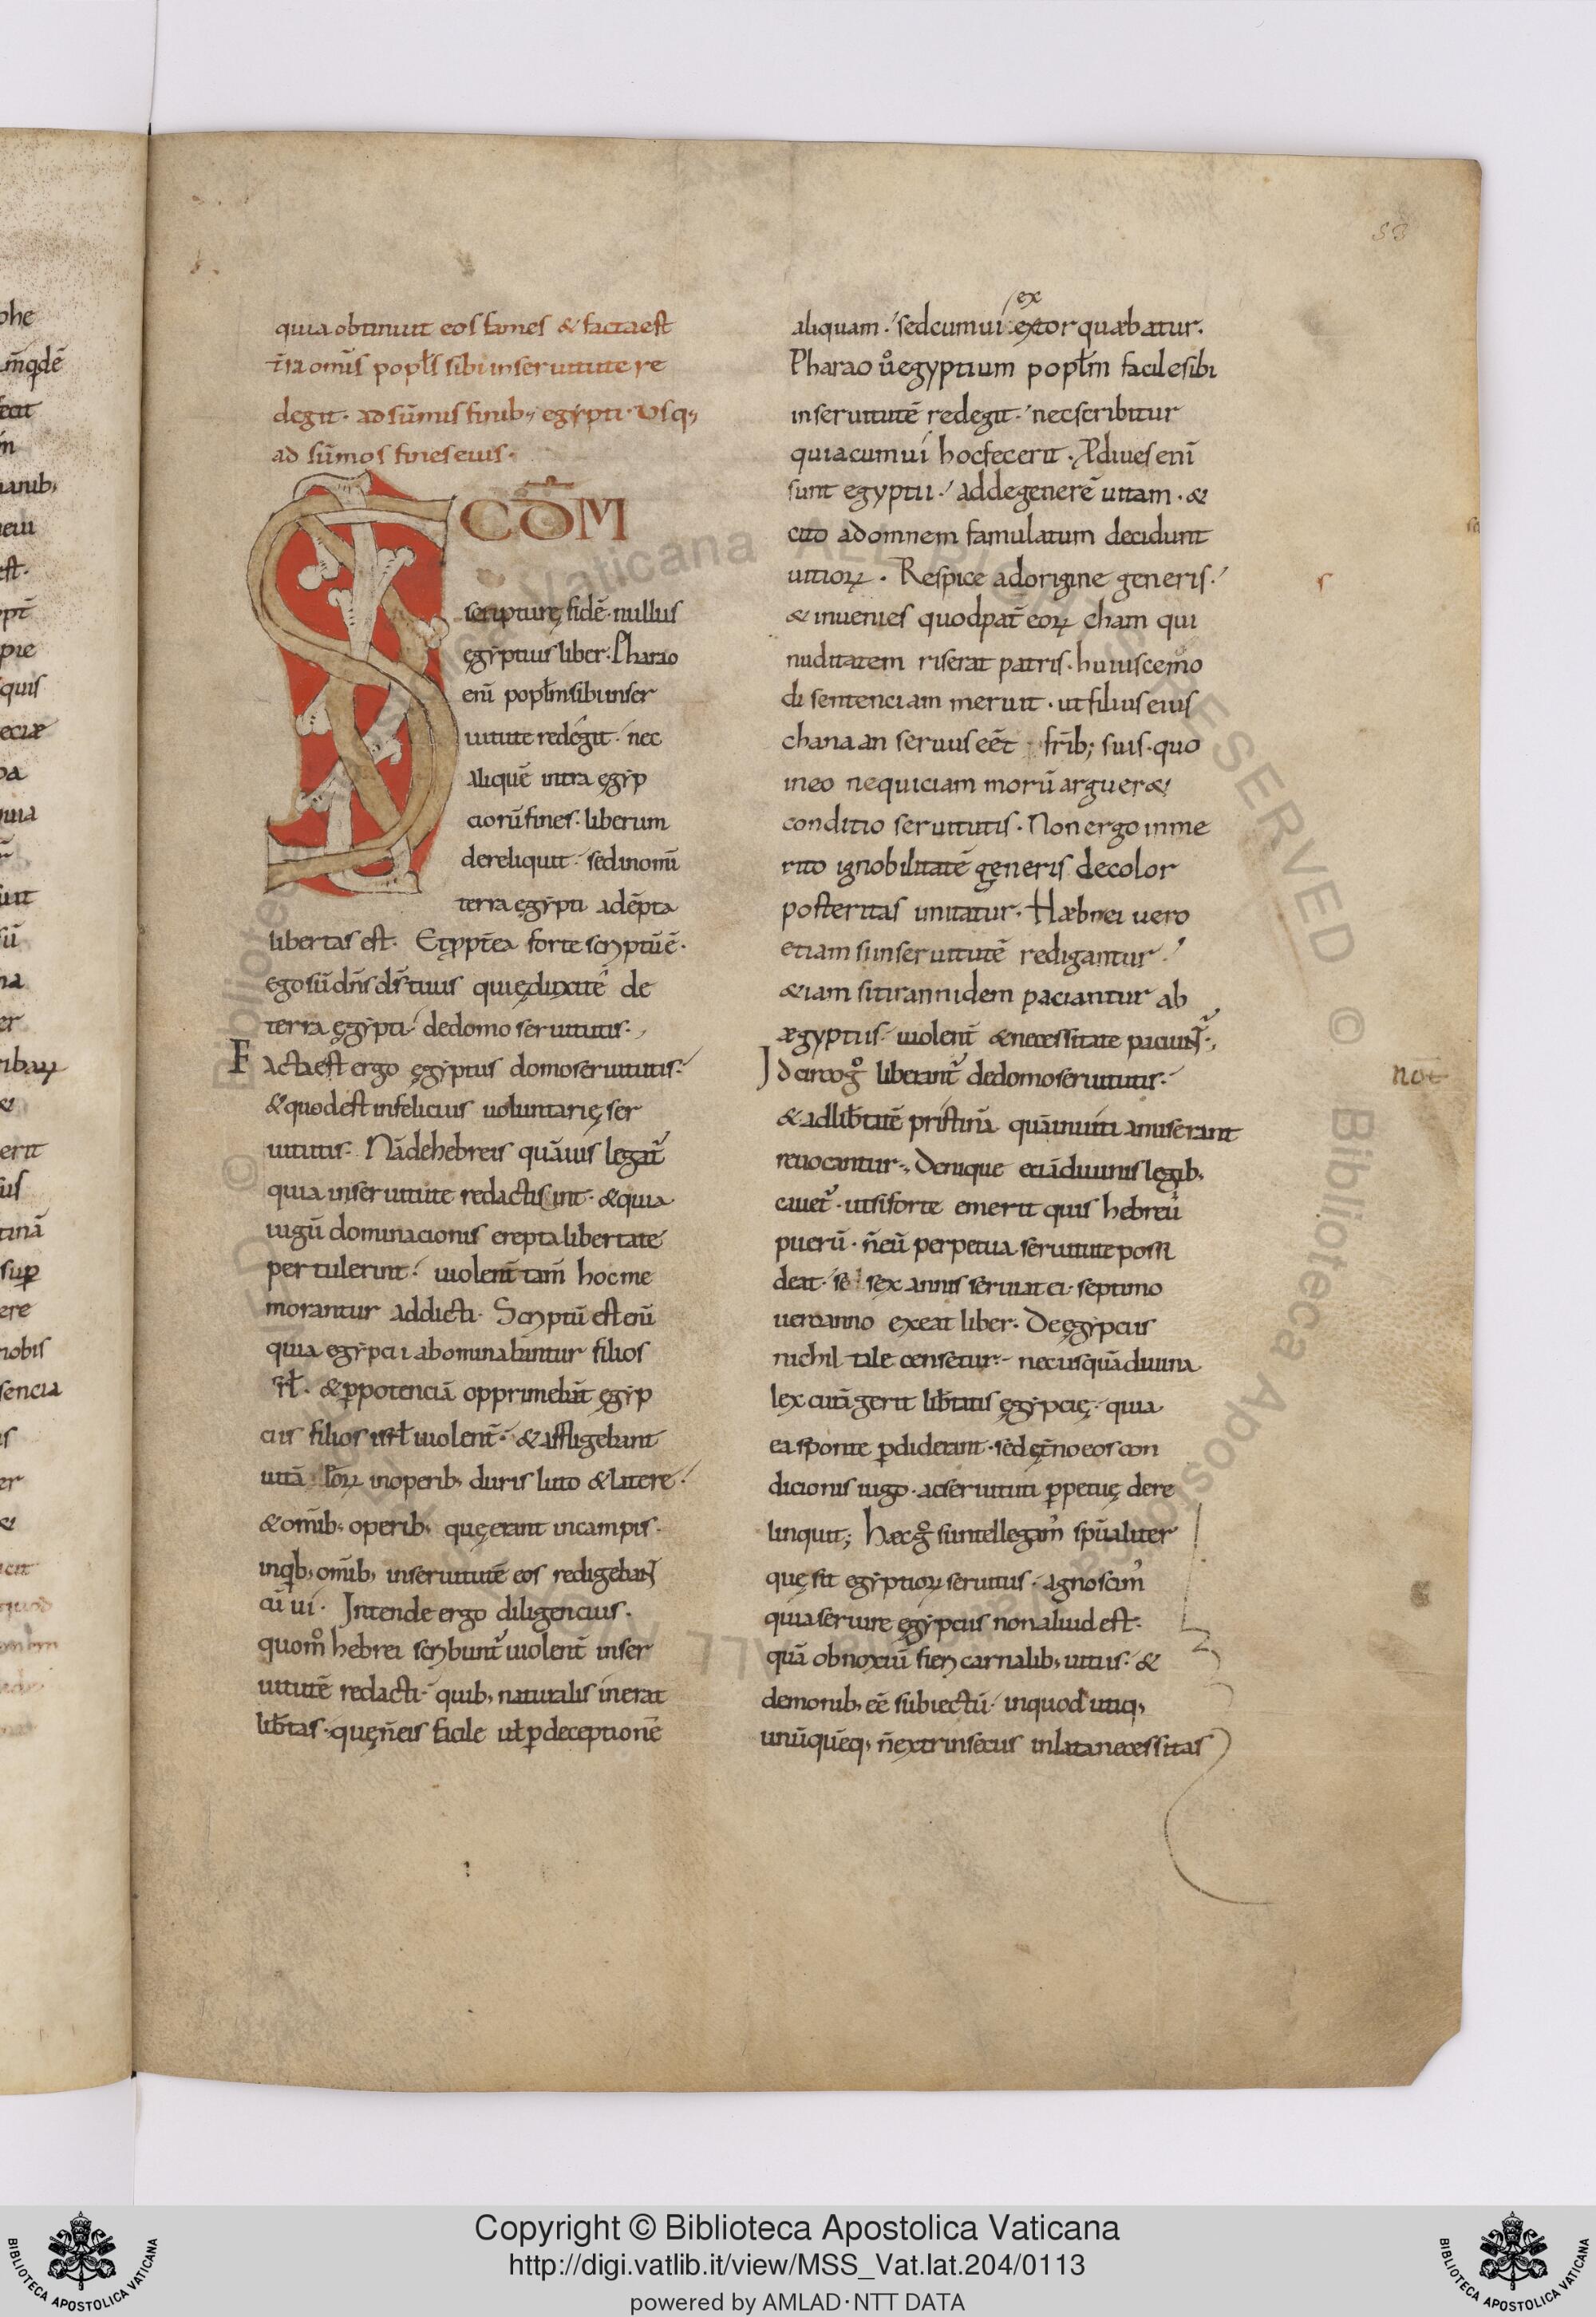 53
quia obtinuit eos fames & facta est
t̄ra om̄is popl̄s sibi in seruitute re
degit · ad sūmis finib; egẏpti · Vsq;
ad sūmos fines eius ·
SCD̄M
scripturę fidē · nullus
ęgẏptius liber · Pharao
enī popl̄m sibi in ser
uitute redégit · nec
aliquē intra ęgẏp
ciorū fines · liberum
dereliquit · sed in om̄i
terra ęgẏpti adēpta
libertas est · Et ꝓpt̄ea forte scriptū ē ·
ego sū dn̄s ds̄ tuus qui ęduxi te de
terra ęgẏpti · de domo seruitutis ·
Facta est ergo ęgẏptus domo seruitutis ·
& quod est infelicius uoluntarię ser
uitutis · Nā de hebreis quāuis legat᷑
quia in seruitute redacti sint · & quia
iugū dominacionis erepta libertate
pertulerint · uiolent̄ tam̄ hoc me
morantur addicti · Scriptū est enī
quia egẏpcii abominabantur filios
isrl̄ · & ꝑ potenciā opprimebant ęgẏp
cii filios isrl̄ uiolent̄ · & affligebant
uitā eorꝝ in operib; duris luto & latere ·
& om̄ib; operib; quę erant in campis ·
in qb; om̄ib; in seruitutē eos redigebant
cū ui · Intende ergo diligencius ·
quom̊ hebrei scribunt᷑ uiolent̄ in ser
uitutē redacti · quib; naturalis inerat
lib̄tas · quę n̄ eis facile ul̄ ꝑ deceptionē
ex
aliquam · sed cum ui extorquæbatur ·
Pharao ů egyptium popl̄m facile sibi
in seruitutē redegit · nec scribitur
quia cum uí hoc fecerit · Procliues enī
sunt egyptii · ad degenerē uitam · &
cito ad omnem famulatum decidunt
uitiorꝝ · Respice ad origine generis ·
& inuenies quod pat̄ eorꝝ cham qui
nuditatem riserat patris · huiuscemo
di sentenciam meruit · ut filius eius
chanaan seruus eēt fr̄ib; suis · quo
in eo nequiciam morū arguer&
conditio seruitutis · Non ergo inme
rito ignobilitatē generis decolor
posteritas imitatur · Hæbrei uero
etiam si in seruitutē redigantur ·
&iam si tirannidem paciantur ab
ægyptiis · uiolent̄ & necessitate paciunt᷑ ·
Idcirco g̊ liberant᷑ de domo seruitutis ·
& ad lib̄tatē pristinā quā inuiti amiserant
reuocantur · Denique eciā diuinis legib;
cauet᷑ · ut si forte emerit quis hebreū
puerū · n̄ eū perpetua seruitute possi
deat · se sex annis seruiat ei · septimo
uero anno exeat liber · De ęgẏpciis
nichil tale censetur · nec usquā diuina
lex curā gerit lib̄tatis ęgẏpcię · quia
ea sponte ꝑdiderant · sed ęt̄no eos con
dicionis iugo · ac seruituti ꝑpetuę dere
linquit; Hæc g̊ si intellegam᷑ spūaliter
quę sit egẏptiorꝝ seruitus · agnoscim᷑
quia seruire ęgẏpciis non aliud est ·
quā obnoxiū fieri carnalib; uitiis · &
demonib; eē subiectū · in quod utiq;
unūquēq; n̄ extrinsecus inlata necessitas
not
Copyright © Biblioteca Apostolica Vaticana
http://digi.vatlib.it/view/MSS_Vat.lat.204/0113
powered by AMLAD·NTT DATA
BIBLIOTECA APOSTOLICA VATICANA
BIBLIOTECA APOSTOLICA VATICANA